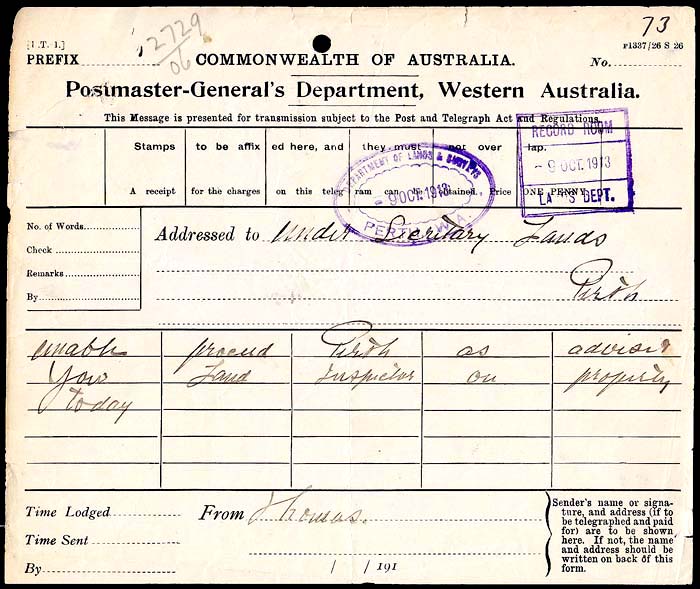 [I.T. 1.]
2729
06
73
P1337/26 S 26
PREFIX
COMMONWEALTH OF AUSTRALIA.
No.
Postmaster-General's Department, Western Australia.
This Message is presented for transmission subject to the Post and Telegraph Act and Regulations.
Stamps to be affixed here, and they must not overlap.
A receipt for the charges on this telegram can be obtained. Price ONE PENNY
DEPARTMENT OF LANDS & SURVEYS
-9 OCT. 1913
PERTH, W.A.
RECORD ROOM
-9 OCT. 1913
LANDS DEPT.
No. of Words
Check
Remarks
By
Addressed to Under Secretary Lands
Perth
unable proceed Perth as advised
Your Land Inspector on property
today
Time Lodged
Time Sent
By
From Thomas.
/ / 191
Sender's name or signa-
ture, and address (if to
be telegraphed and paid
for) are to be shown
here. If not, the name
and address should be
written on back of this
form.